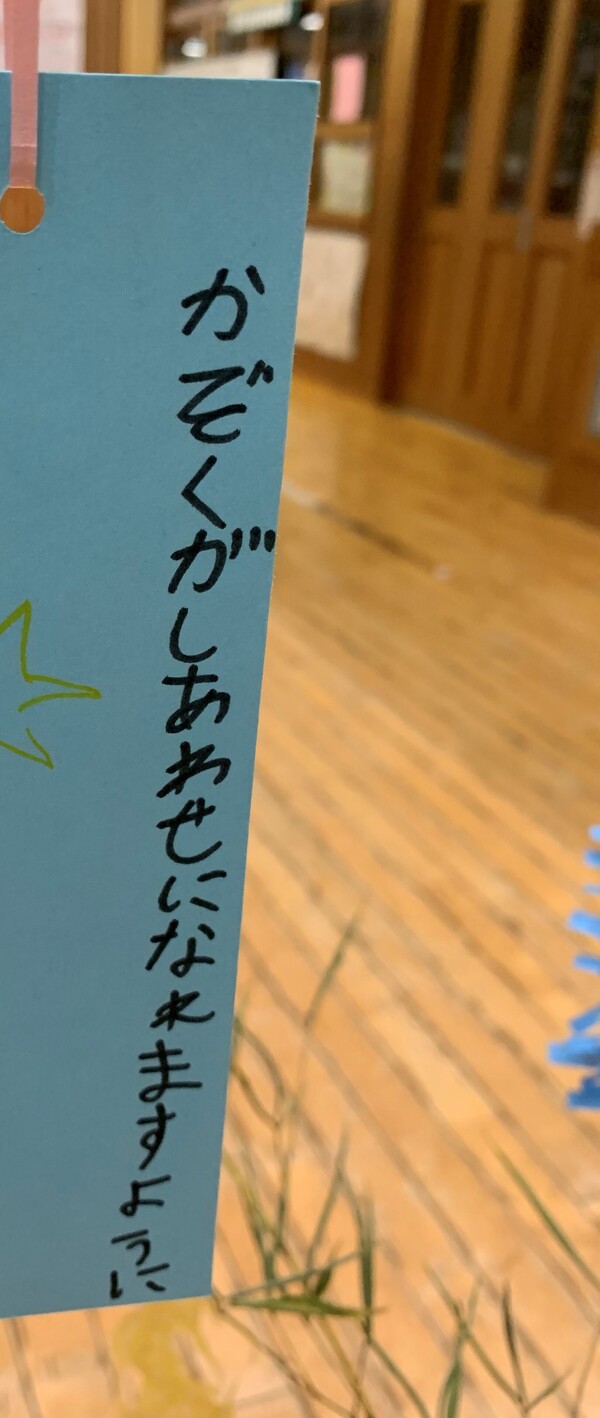 かぞくがしあわせになれますように